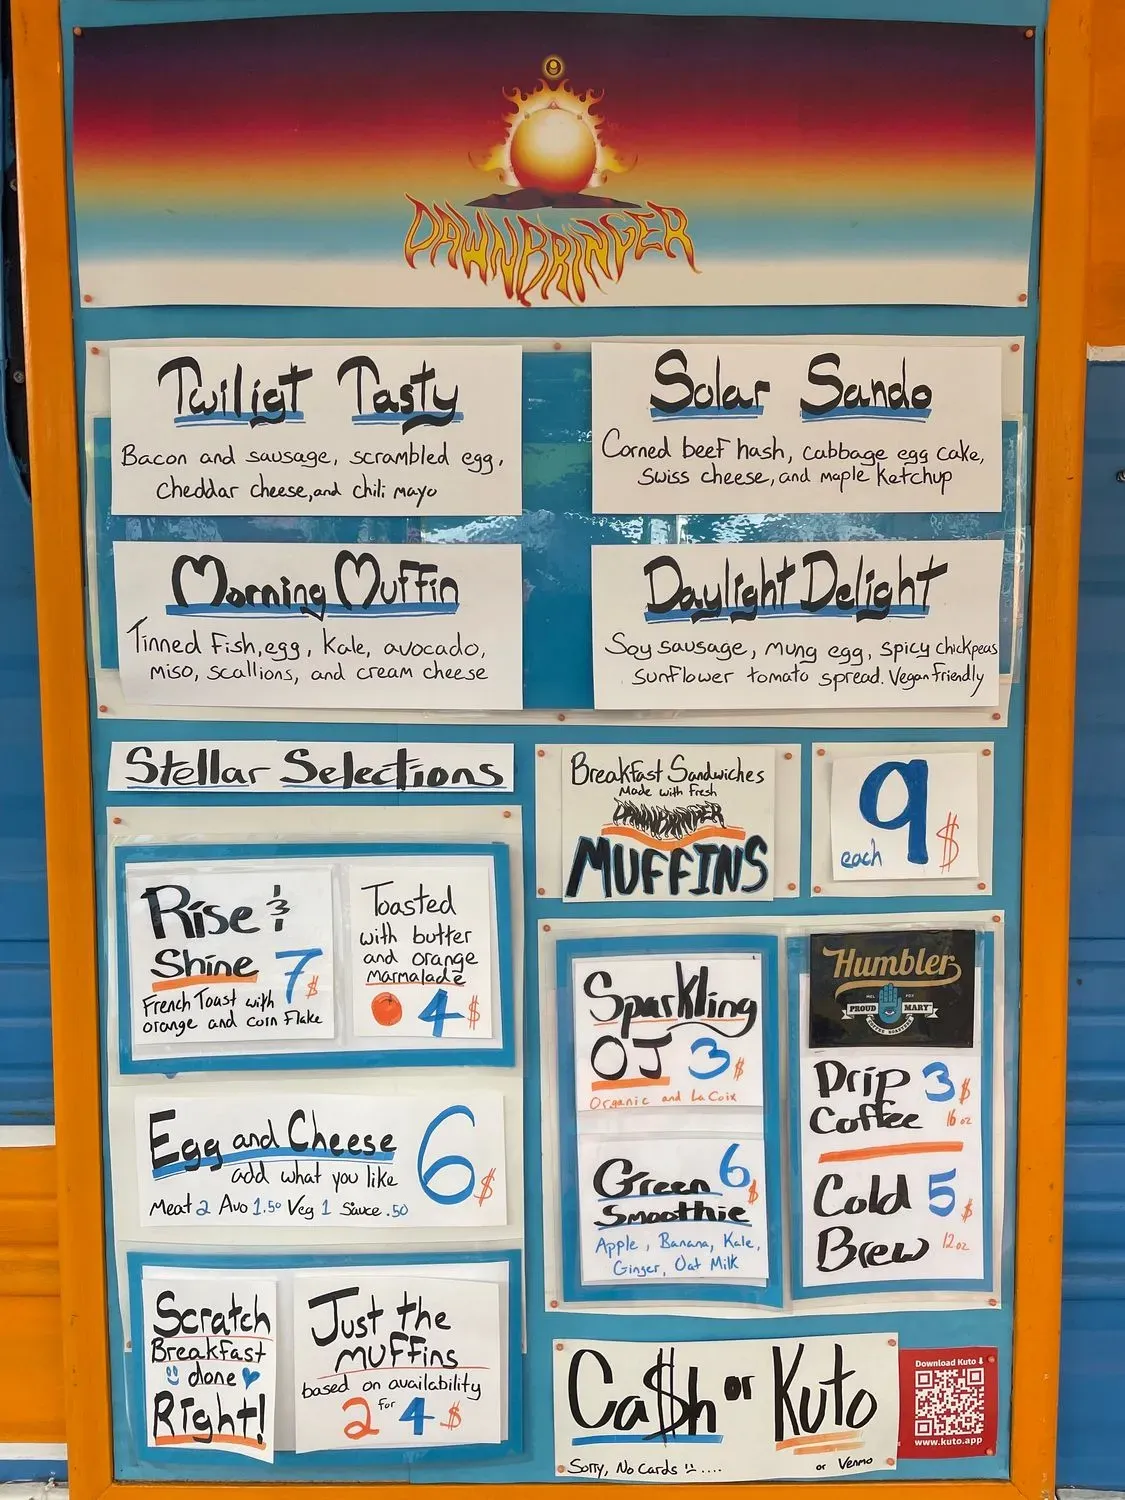 DAWNBRINGER
Twiligt Tasty
Bacon and sausage, scrambled egg,
Cheddar cheese, and chili mayo
Solar Sando
Corned beef hash, cabbage egg cake,
Swiss cheese, and maple ketchup
Morning Muffin
Tinned Fish, egg, Kale, avocado,
miso, scallions, and cream cheese
Daylight Delight
Soy sausage, mung egg, spicy chickpeas
sunflower tomato spread. Vegan friendly
Stellar Selections
Breakfast Sandwiches
Made with Fresh
DAWNBRINGER
MUFFINS
9
each $
Rise &
Shine 7$
French Toast with
orange and corn flake
Toasted
with butter
and orange
marmalade
4$
Egg and Cheese 6$
add what you like
Meat 2 Avo 1.50 Veg 1 Sauce .50
Scratch
Breakfast
done
Right!
Just the
Muffins
based on availability
2 for 4$
Sparkling
OJ 3$
Organic and La Coix
Green 6$
Smoothie
Apple, Banana, Kale,
Ginger, Oat Milk
Humbler
PROUD MARY
COFFEE ROASTERS
Drip 3$
Coffee 16 oz
Cold 5$
Brew 12 oz
Ca$h or Kuto
Sorry, No Cards :( ....
or Venmo
Download Kuto ↓
www.kuto.app